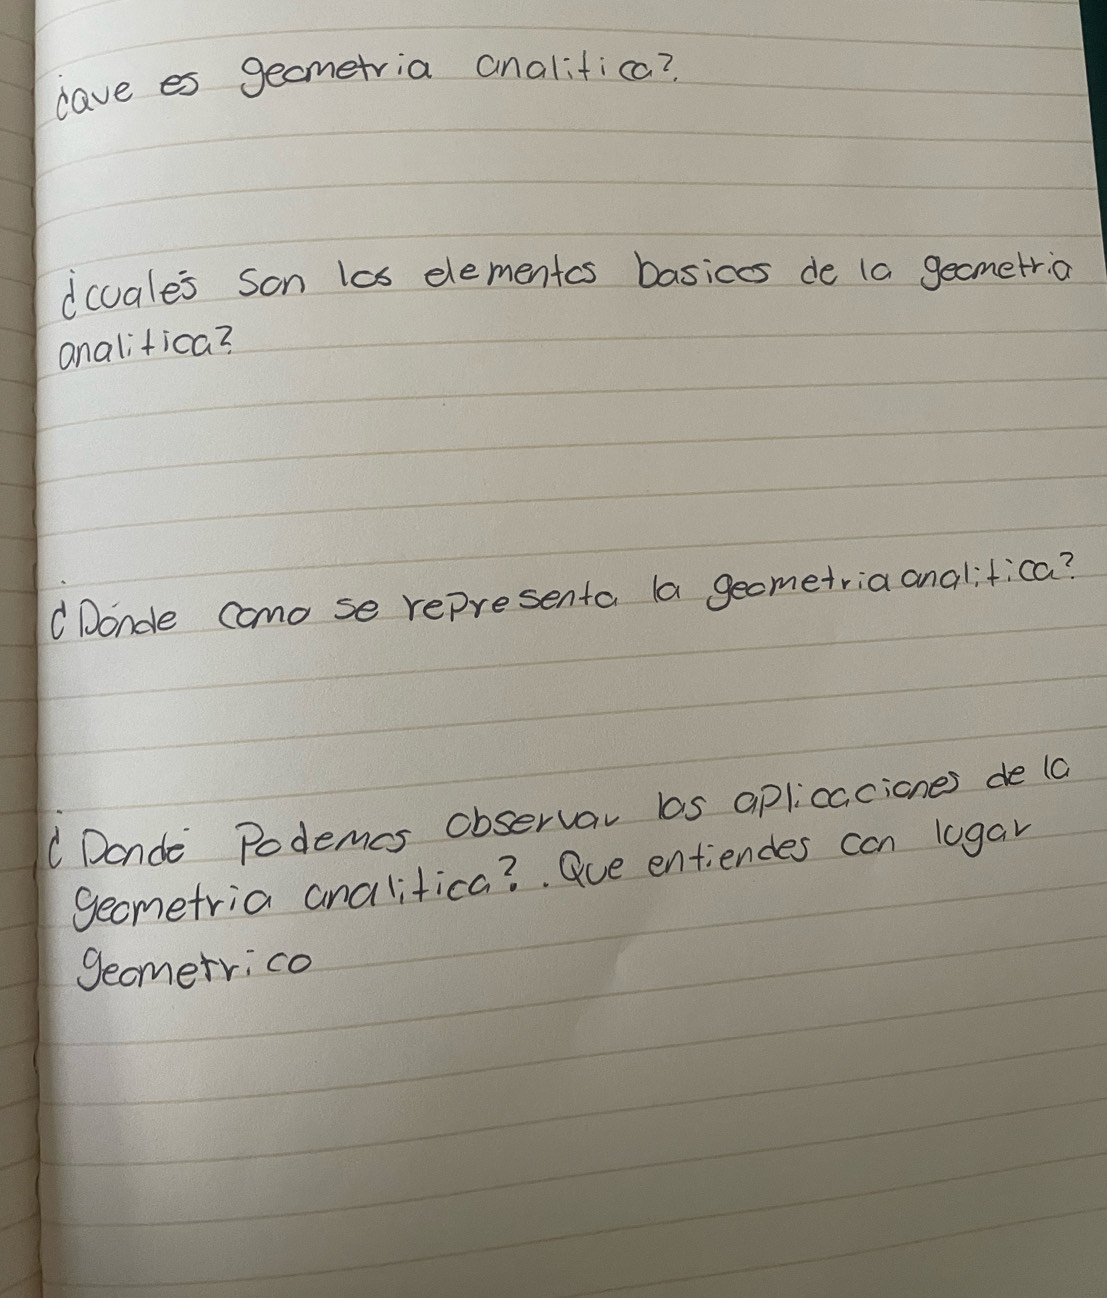 ¿Que es geometria analitica?
¿cuales son los elementos basicos de la geometria
analitica?
¿Dónde como se representa la geometria analitica?
¿Dondé Podemos observar las aplicaciones de la
geometria analitica?. Que entiendes con lugar
geometrico